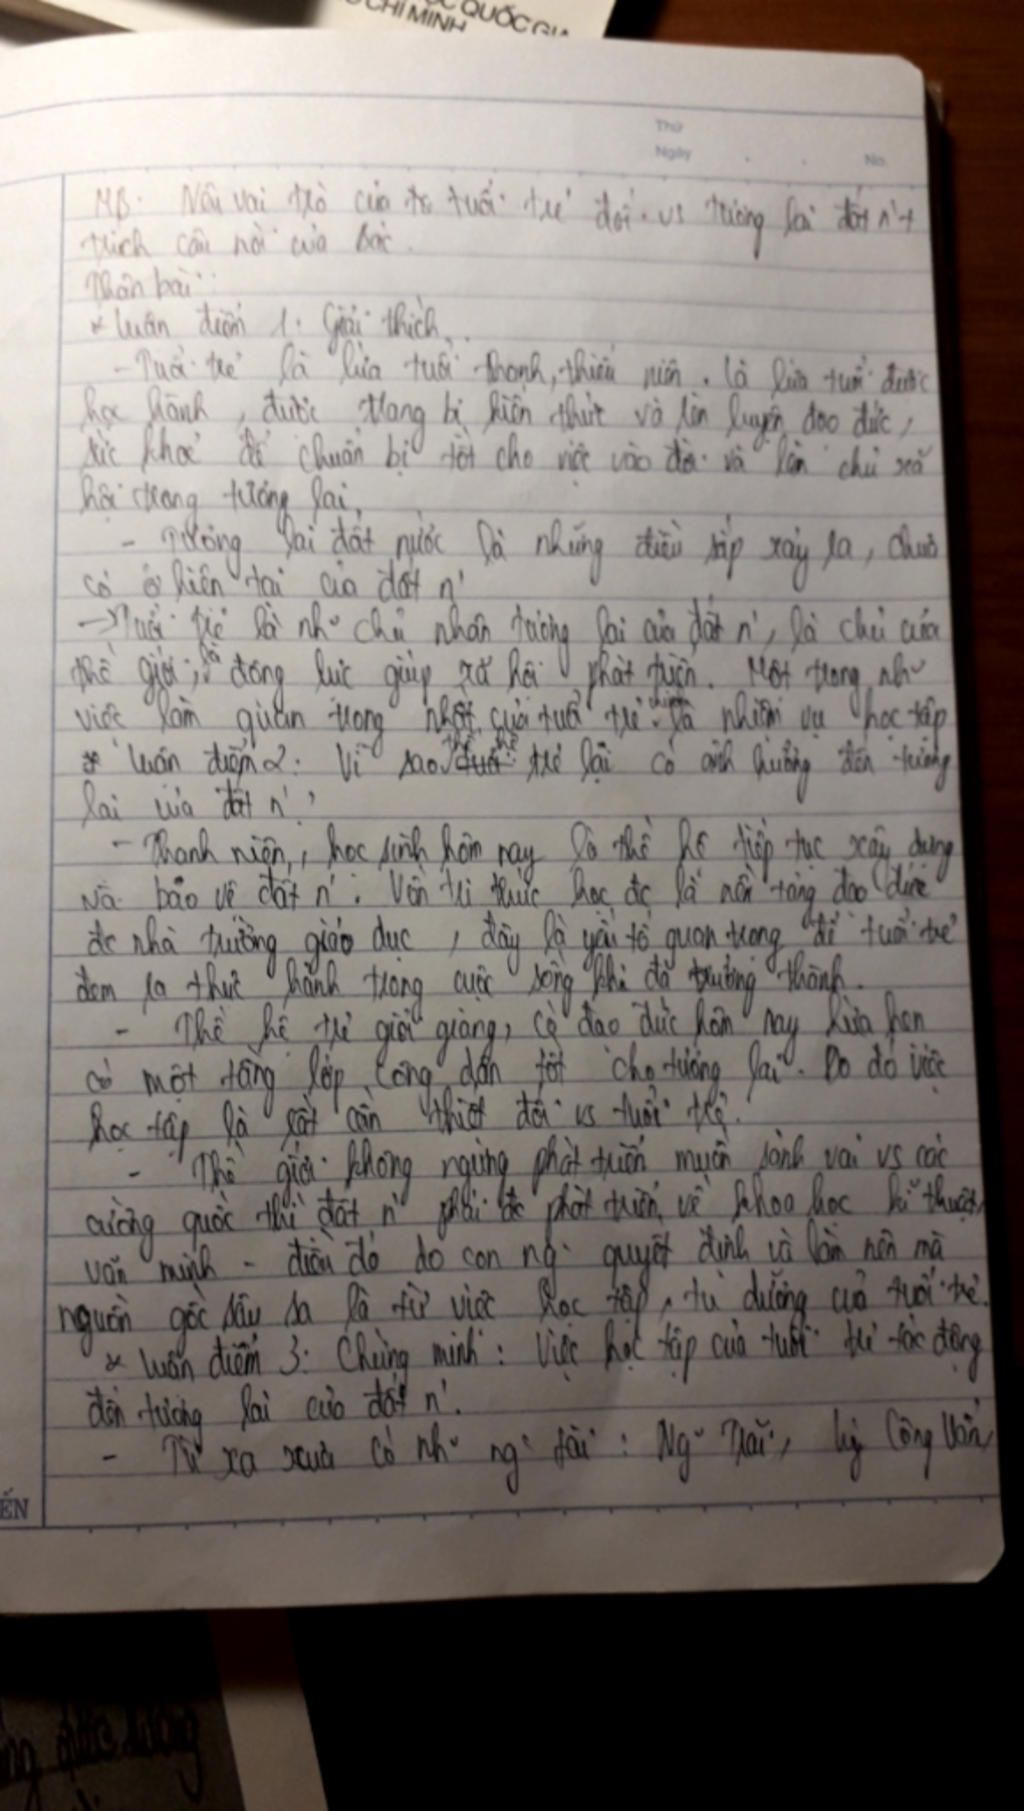 ỌC QUỐC GIA
Ồ CHÍ MINH
Thứ
Ngày . . No.
MB: Nêu vai trò của tuổi trẻ đối vs tương lai đất n' +
trích câu nói của Bác.
Thân bài:
* Luận điểm 1: Giải thích.
- Tuổi trẻ là lứa tuổi thanh, thiếu niên. Là lứa tuổi được
học hành, được trang bị kiến thức và rèn luyện đạo đức,
sức khoẻ để chuẩn bị tốt cho việc vào đời và làm chủ xã
hội trong tương lai.
- Tương lai đất nước là những điều sắp xảy ra, chưa
có ở hiện tại của đất n'
→ Tuổi trẻ là nh~ chủ nhân tương lai của đất n', là chủ của
thế giới, là động lực giúp xã hội phát triển. Một trong nh~
việc làm quan trọng nhất của tuổi trẻ chính là nhiệm vụ học tập
* Luận điểm 2: Vì sao thế hệ trẻ lại có ảnh hưởng đến tương
lai của đất n'?
- Thanh niên, học sinh hôm nay là thế hệ tiếp tục xây dựng
và bảo vệ đất n'. Vốn tri thức học đc là nền tảng đạo đức
đc nhà trường giáo dục, đây là yếu tố quan trọng để tuổi trẻ
đem ra thực hành trong cuộc sống khi đã trưởng thành.
- Thế hệ trẻ giỏi giang, có đạo đức hôm nay hứa hẹn
có một tầng lớp công dân tốt cho tương lai. Do đó việc
học tập là rất cần thiết đối vs tuổi trẻ.
- Thế giới không ngừng phát triển muốn sánh vai vs các
cường quốc thì đất n' phải đc phát triển về khoa học kĩ thuật,
văn minh - điều đó do con ng` quyết định và làm nên mà
nguồn gốc sâu sa là từ việc học tập, tu dưỡng của tuổi trẻ.
* Luận điểm 3: Chứng minh: Việc học tập của tuổi trẻ tác động
đến tương lai của đất n'.
- Từ xa xưa có nh~ ng` tài: Ng~ Trãi, Lý Công Uẩn,
ẾN